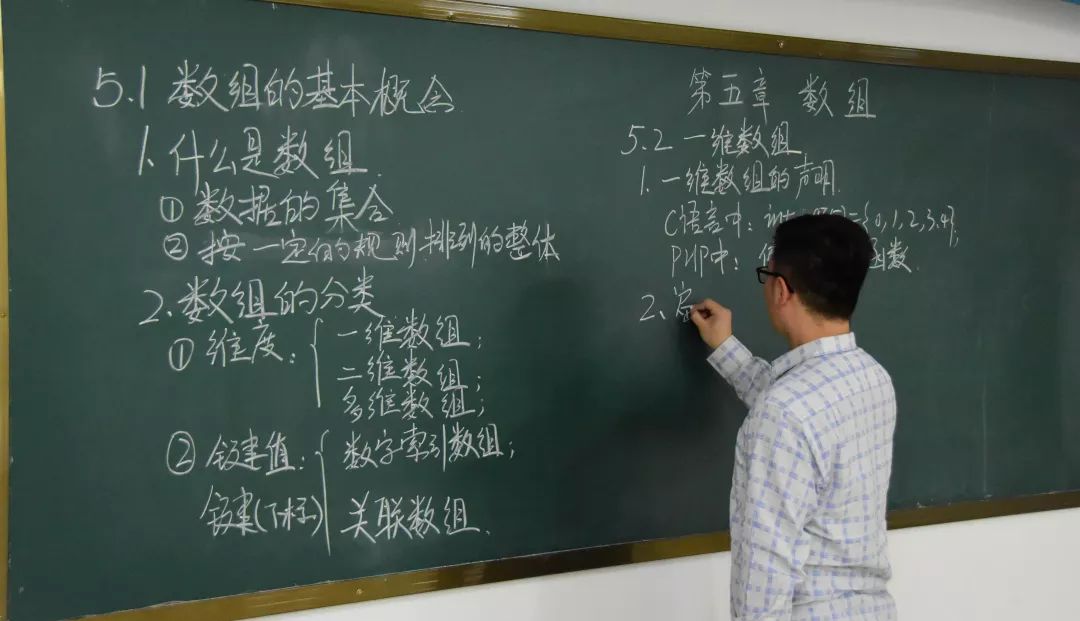 5.1 数组的基本概念
1. 什么是数组.
① 数据的集合
② 按一定的规则排列的整体
2. 数组的分类
① 维度:
一维数组;
二维数组;
多维数组;
② 键值:
数字索引数组;
键(下标)
关联数组.
第五章 数组
5.2 一维数组
1. 一维数组的声明.
C语言中: int ={0,1,2,3,4};
PHP中: 函数.
2、定